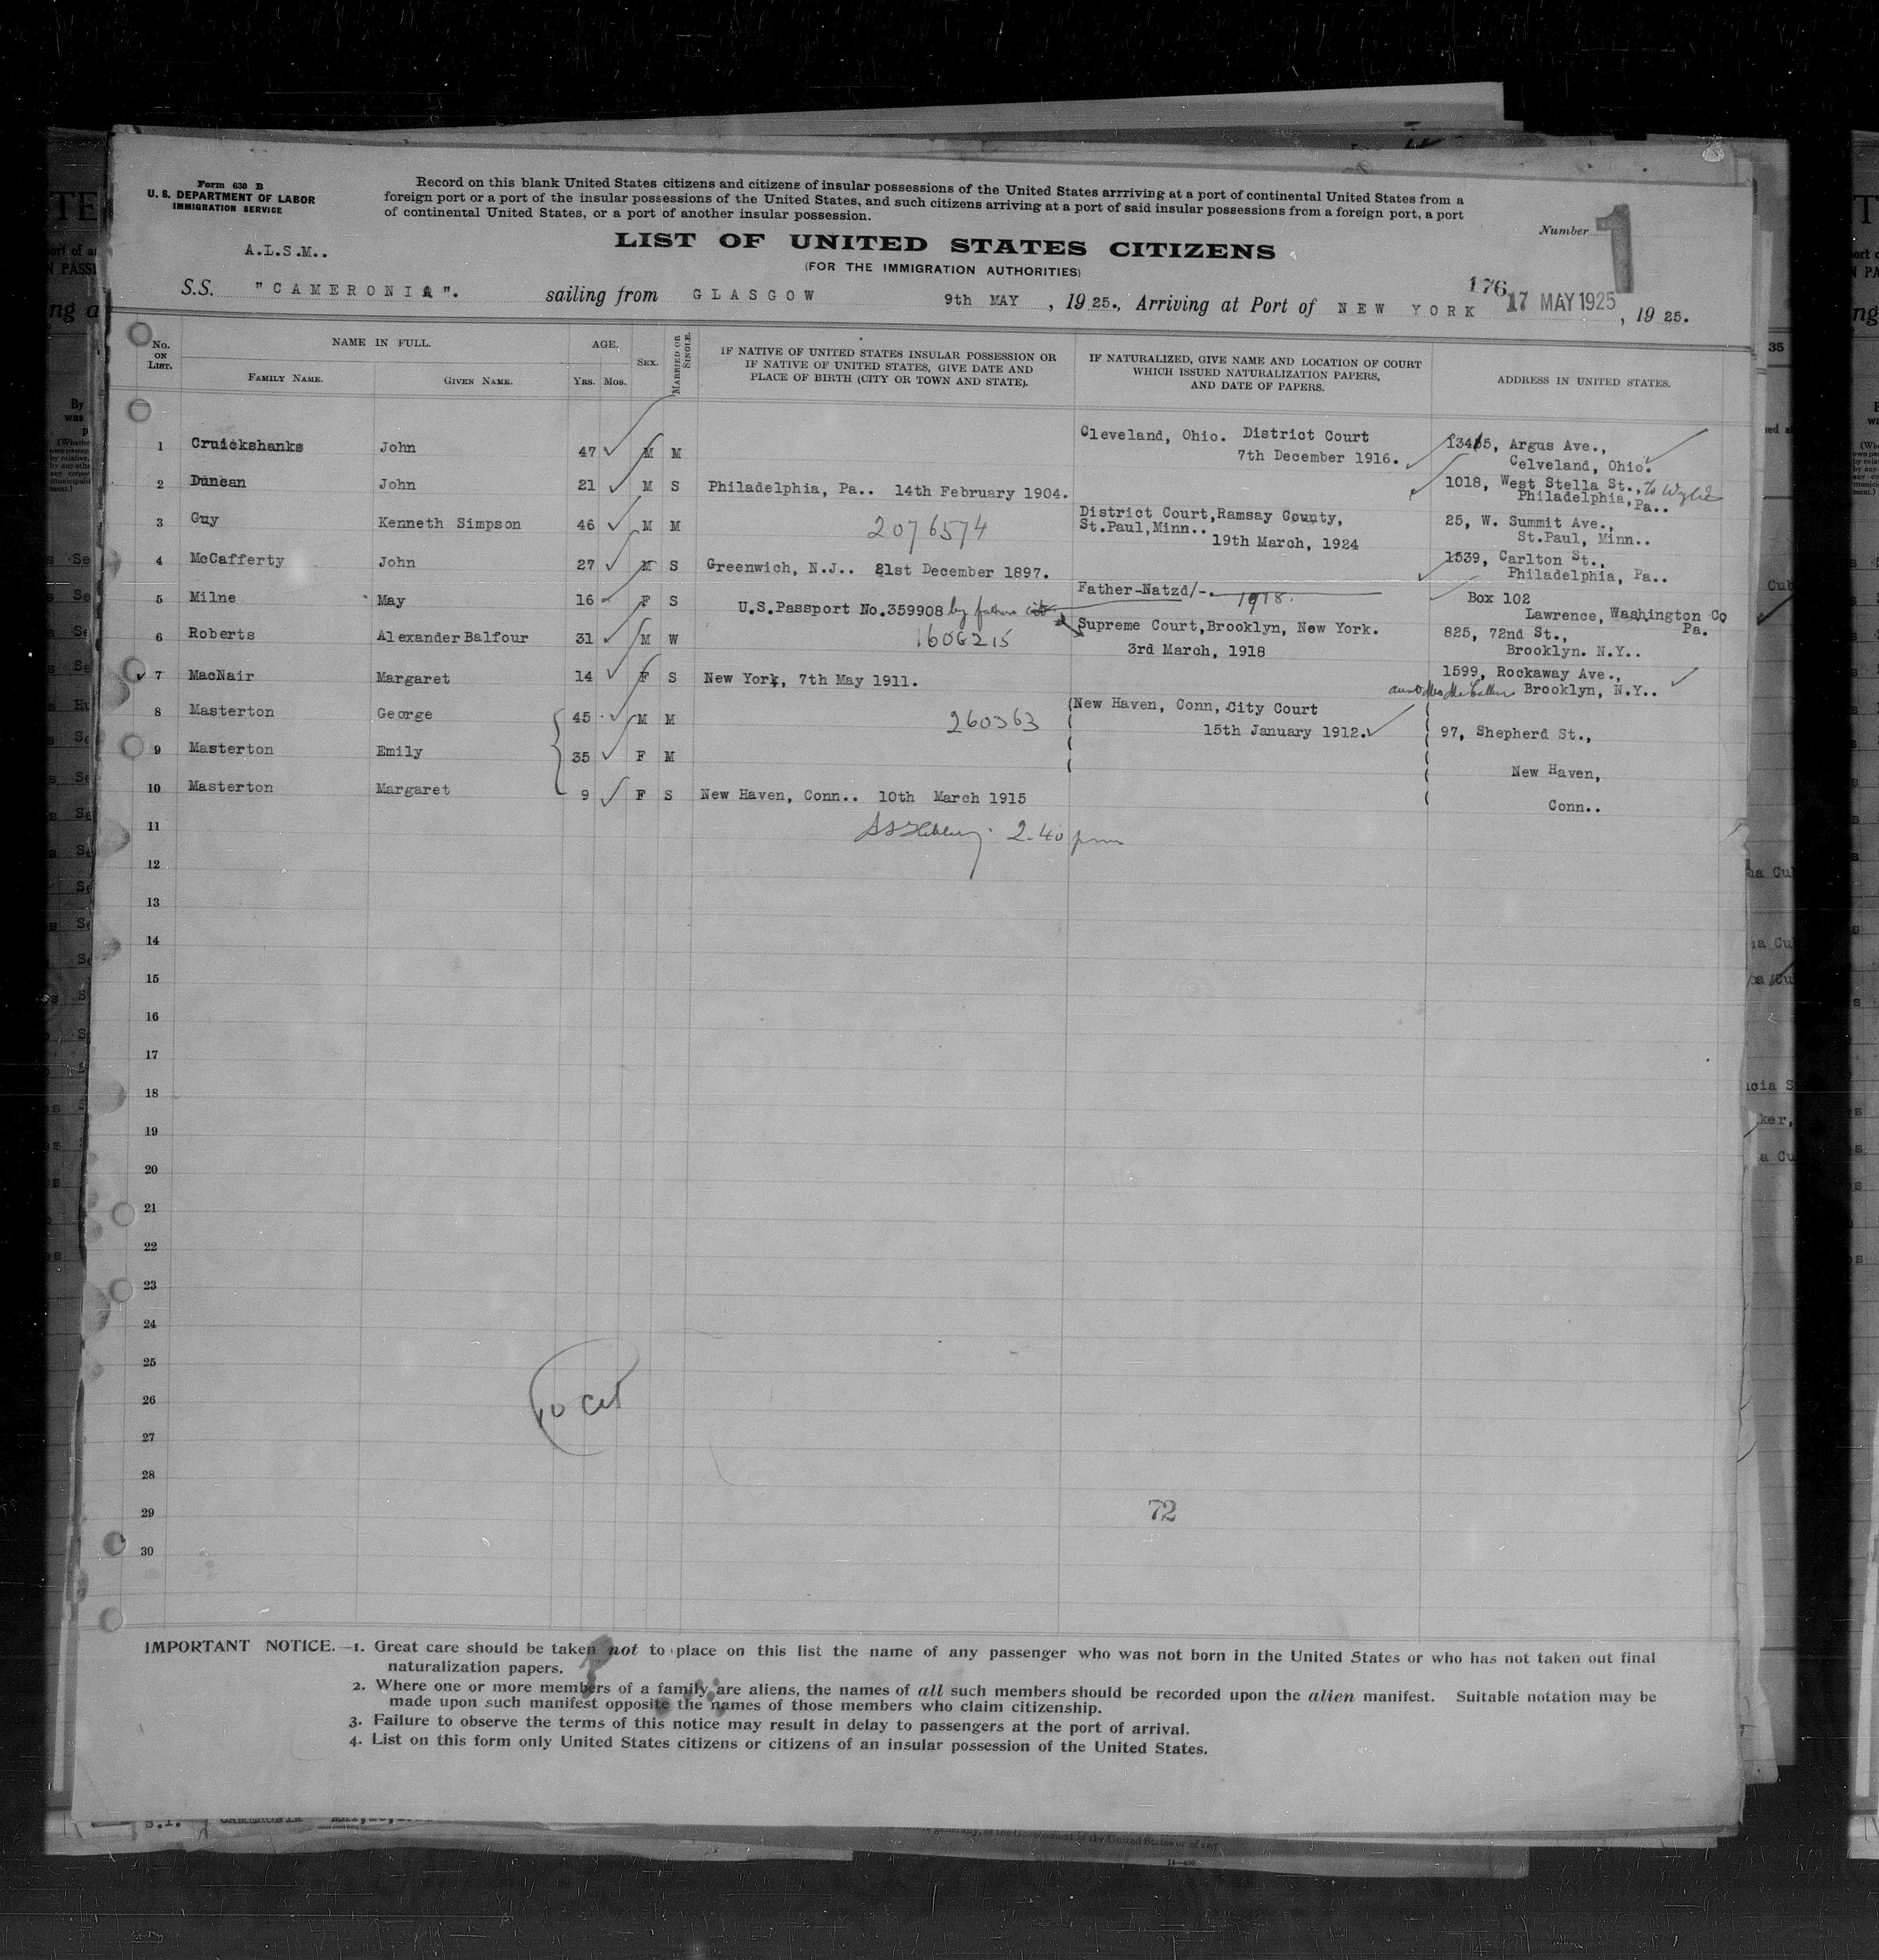 Form 630 B
U. S. DEPARTMENT OF LABOR
IMMIGRATION SERVICE
Record on this blank United States citizens and citizens of insular possessions of the United States arrriving at a port of continental United States from a
foreign port or a port of the insular possessions of the United States, and such citizens arriving at a port of said insular possessions from a foreign port, a port
of continental United States, or a port of another insular possession.
Number 1
LIST OF UNITED STATES CITIZENS
(FOR THE IMMIGRATION AUTHORITIES)
A.L.S.M..
176
S.S. "CAMERONIA". sailing from GLASGOW 9th MAY, 1925., Arriving at Port of NEW YORK 17 MAY 1925, 1925.
No. ON LIST.
NAME IN FULL.
FAMILY NAME. GIVEN NAME.
AGE.
Yrs. Mos.
SEX.
MARRIED OR SINGLE.
IF NATIVE OF UNITED STATES INSULAR POSSESSION OR
IF NATIVE OF UNITED STATES, GIVE DATE AND
PLACE OF BIRTH (CITY OR TOWN AND STATE).
IF NATURALIZED, GIVE NAME AND LOCATION OF COURT
WHICH ISSUED NATURALIZATION PAPERS,
AND DATE OF PAPERS.
ADDRESS IN UNITED STATES.
1 Cruickshanks John 47 M M Cleveland, Ohio. District Court
7th December 1916.
Argus Ave.,
Celveland, Ohio.
2 Duncan John 21 M S Philadelphia, Pa.. 14th February 1904. 1018, West Stella St., to Wylie
Philadelphia, Pa..
3 Guy Kenneth Simpson 46 M M 2076574 District Court,Ramsay County,
St.Paul,Minn..
19th March, 1924
25, W. Summit Ave.,
St.Paul, Minn..
4 McCafferty John 27 M S Greenwich, N.J.. 21st December 1897. 1539, Carlton St.,
Philadelphia, Pa..
5 Milne May 16 F S U.S.Passport No.359908 by father Father-Natzd/-. 1918.
Box 102
Lawrence, Washington Co
Pa.
6 Roberts Alexander Balfour 31 M W 1606215 Supreme Court,Brooklyn, New York.
3rd March, 1918
825, 72nd St.,
Brooklyn. N.Y..
7 MacNair Margaret 14 F S New York, 7th May 1911. 1599, Rockaway Ave.,
aunt Mrs Brooklyn, N.Y..
8 Masterton George 45 M M 260363 New Haven, Conn, City Court
15th January 1912.
97, Shepherd St.,
9 Masterton Emily 35 F M New Haven,
10 Masterton Margaret 9 F S New Haven, Conn.. 10th March 1915 Conn..
2.40 pm
11
12
13
14
15
16
17
18
19
20
21
22
23
24
25
26
27
28
29
30
10 cit
72
IMPORTANT NOTICE.—1. Great care should be taken not to place on this list the name of any passenger who was not born in the United States or who has not taken out final
naturalization papers.
2. Where one or more members of a family are aliens, the names of all such members should be recorded upon the alien manifest. Suitable notation may be
made upon such manifest opposite the names of those members who claim citizenship.
3. Failure to observe the terms of this notice may result in delay to passengers at the port of arrival.
4. List on this form only United States citizens or citizens of an insular possession of the United States.